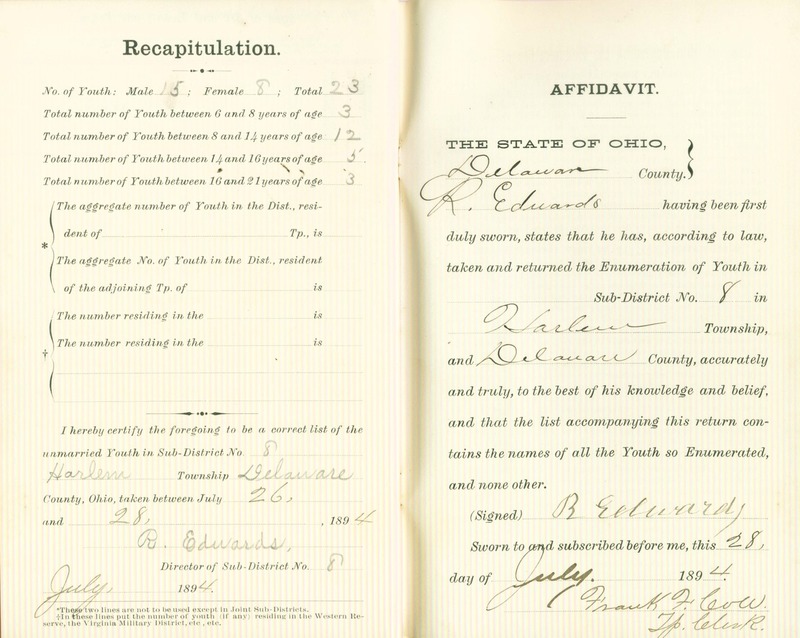 Recapitulation.
No. of Youth: Male 15; Female 8; Total 23
Total number of Youth between 6 and 8 years of age 3
Total number of Youth between 8 and 14 years of age 12
Total number of Youth between 14 and 16 years of age 5.
Total number of Youth between 16 and 21 years of age 3
The aggregate number of Youth in the Dist., resi-
dent of Tp., is
*
The aggregate No. of Youth in the Dist., resident
of the adjoining Tp. of is
The number residing in the is
†
The number residing in the is
I hereby certify the foregoing to be a correct list of the
unmarried Youth in Sub-District No 8
Harlem Township Delaware
County, Ohio, taken between July 26,
and 28, , 1894
B. Edwards,
Director of Sub-District No. 8
July, 1894.
*These two lines are not to be used except in Joint Sub-Districts.
†In these lines put the number of youth (if any) residing in the Western Re-
serve, the Virginia Military District, etc., etc.
AFFIDAVIT.
THE STATE OF OHIO,
Delaware County.
R. Edwards having been first
duly sworn, states that he has, according to law,
taken and returned the Enumeration of Youth in
Sub-District No. 8 in
Harlem Township,
and Delaware County, accurately
and truly, to the best of his knowledge and belief,
and that the list accompanying this return con-
tains the names of all the Youth so Enumerated,
and none other.
(Signed) B Edwards
Sworn to and subscribed before me, this 28,
day of July. 1894.
Frank F
Tp. Clerk.